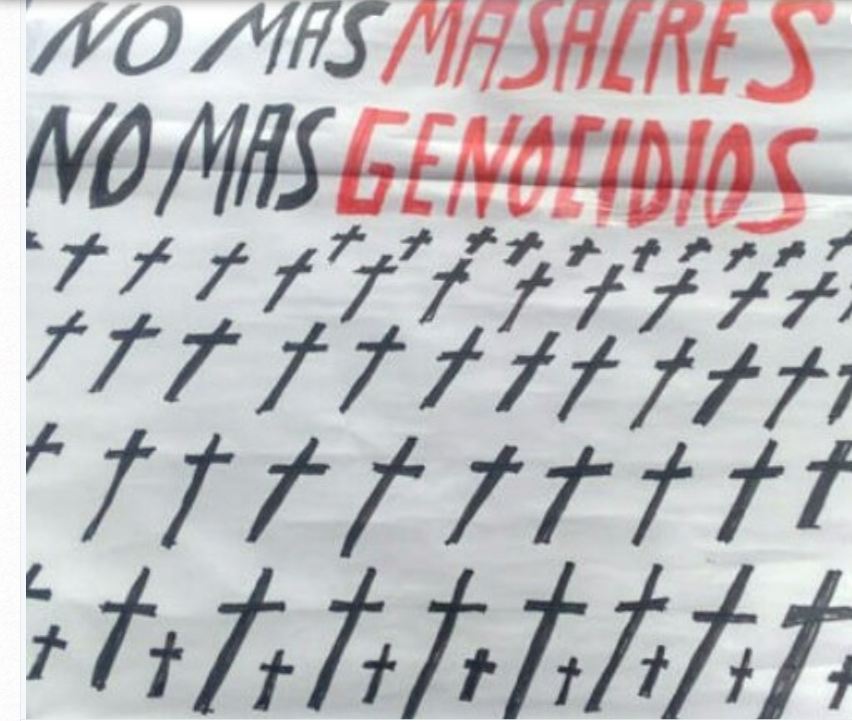 NO MAS MASACRES
NO MAS GENOCIDIOS